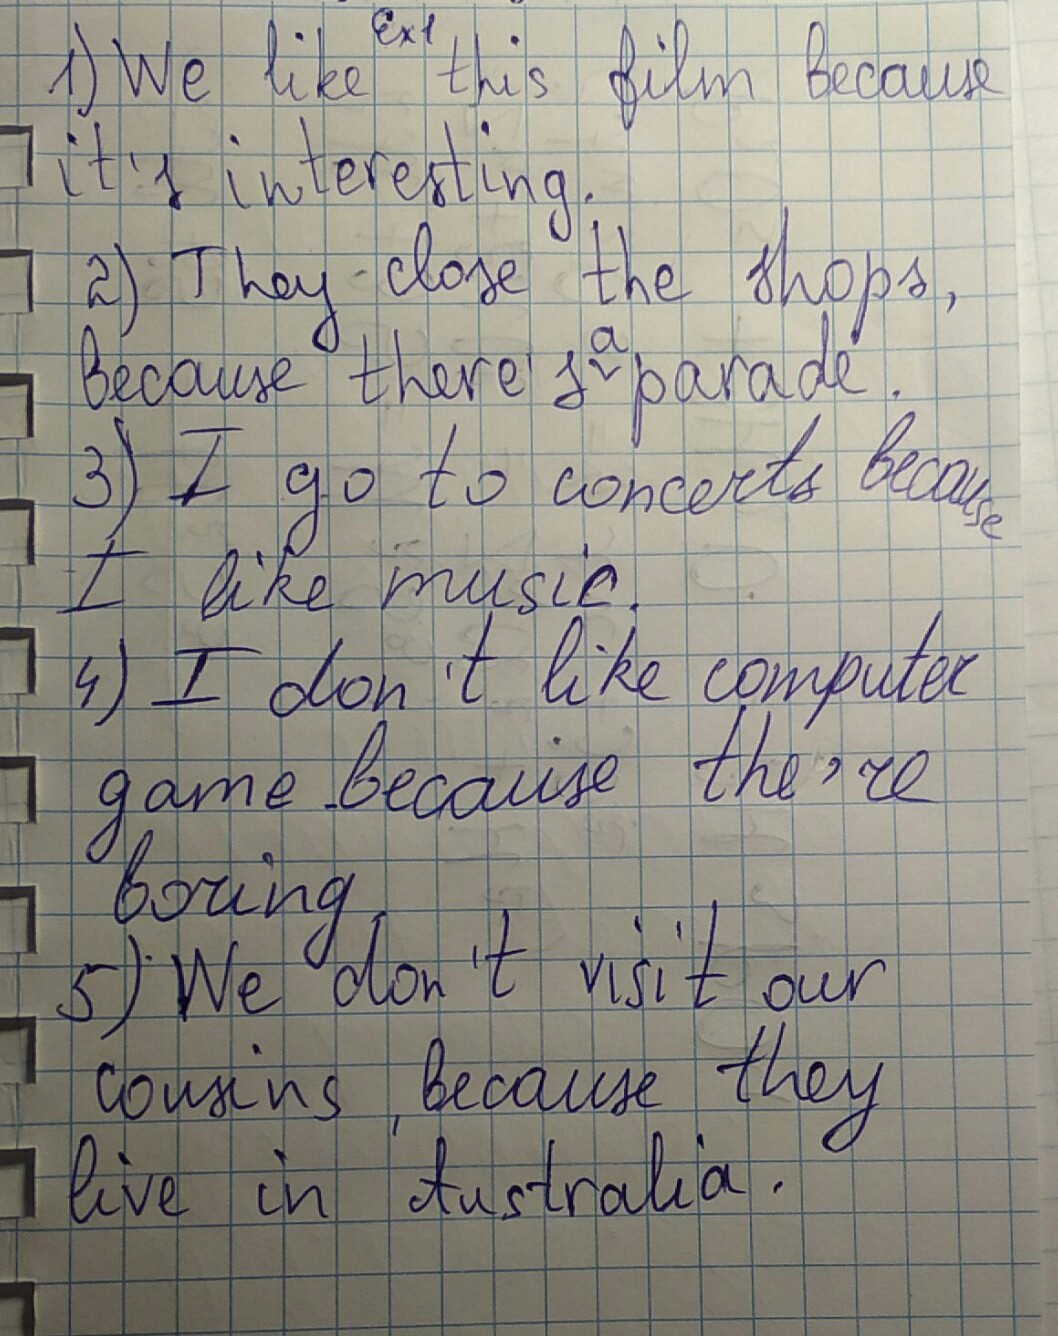 Ex1
1) We like this film because
it's interesting.
2) They close the shops,
because there's a parade.
3) I go to concerts because
I like music.
4) I don't like computer
game because the're
boring
5) We don't visit our
cousins, because they
live in Australia.